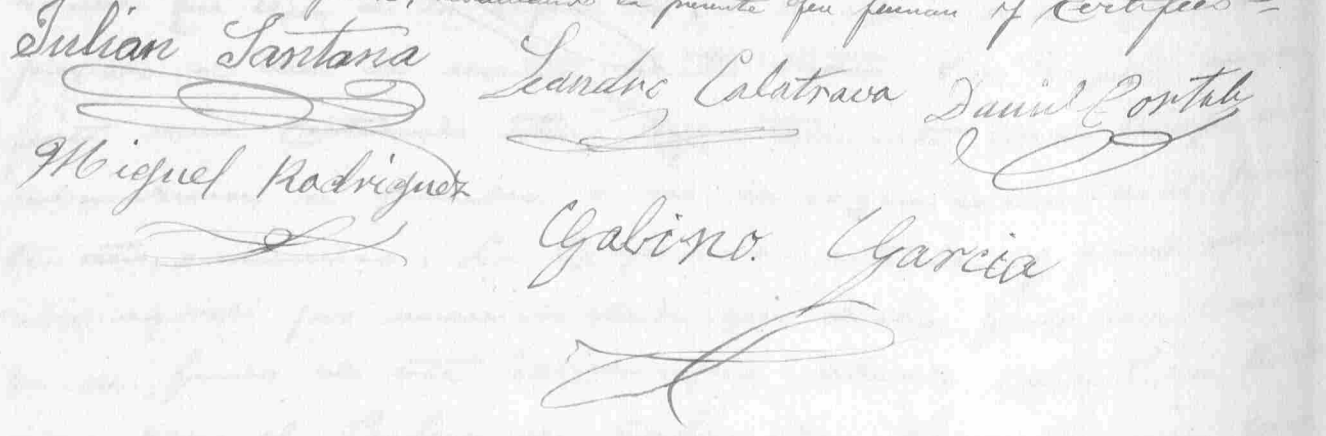 la presente que firman y certifico =
Julian Santana
Leandro Calatrava
Daniel Portale
Miguel Rodriguez
Gabino. Garcia